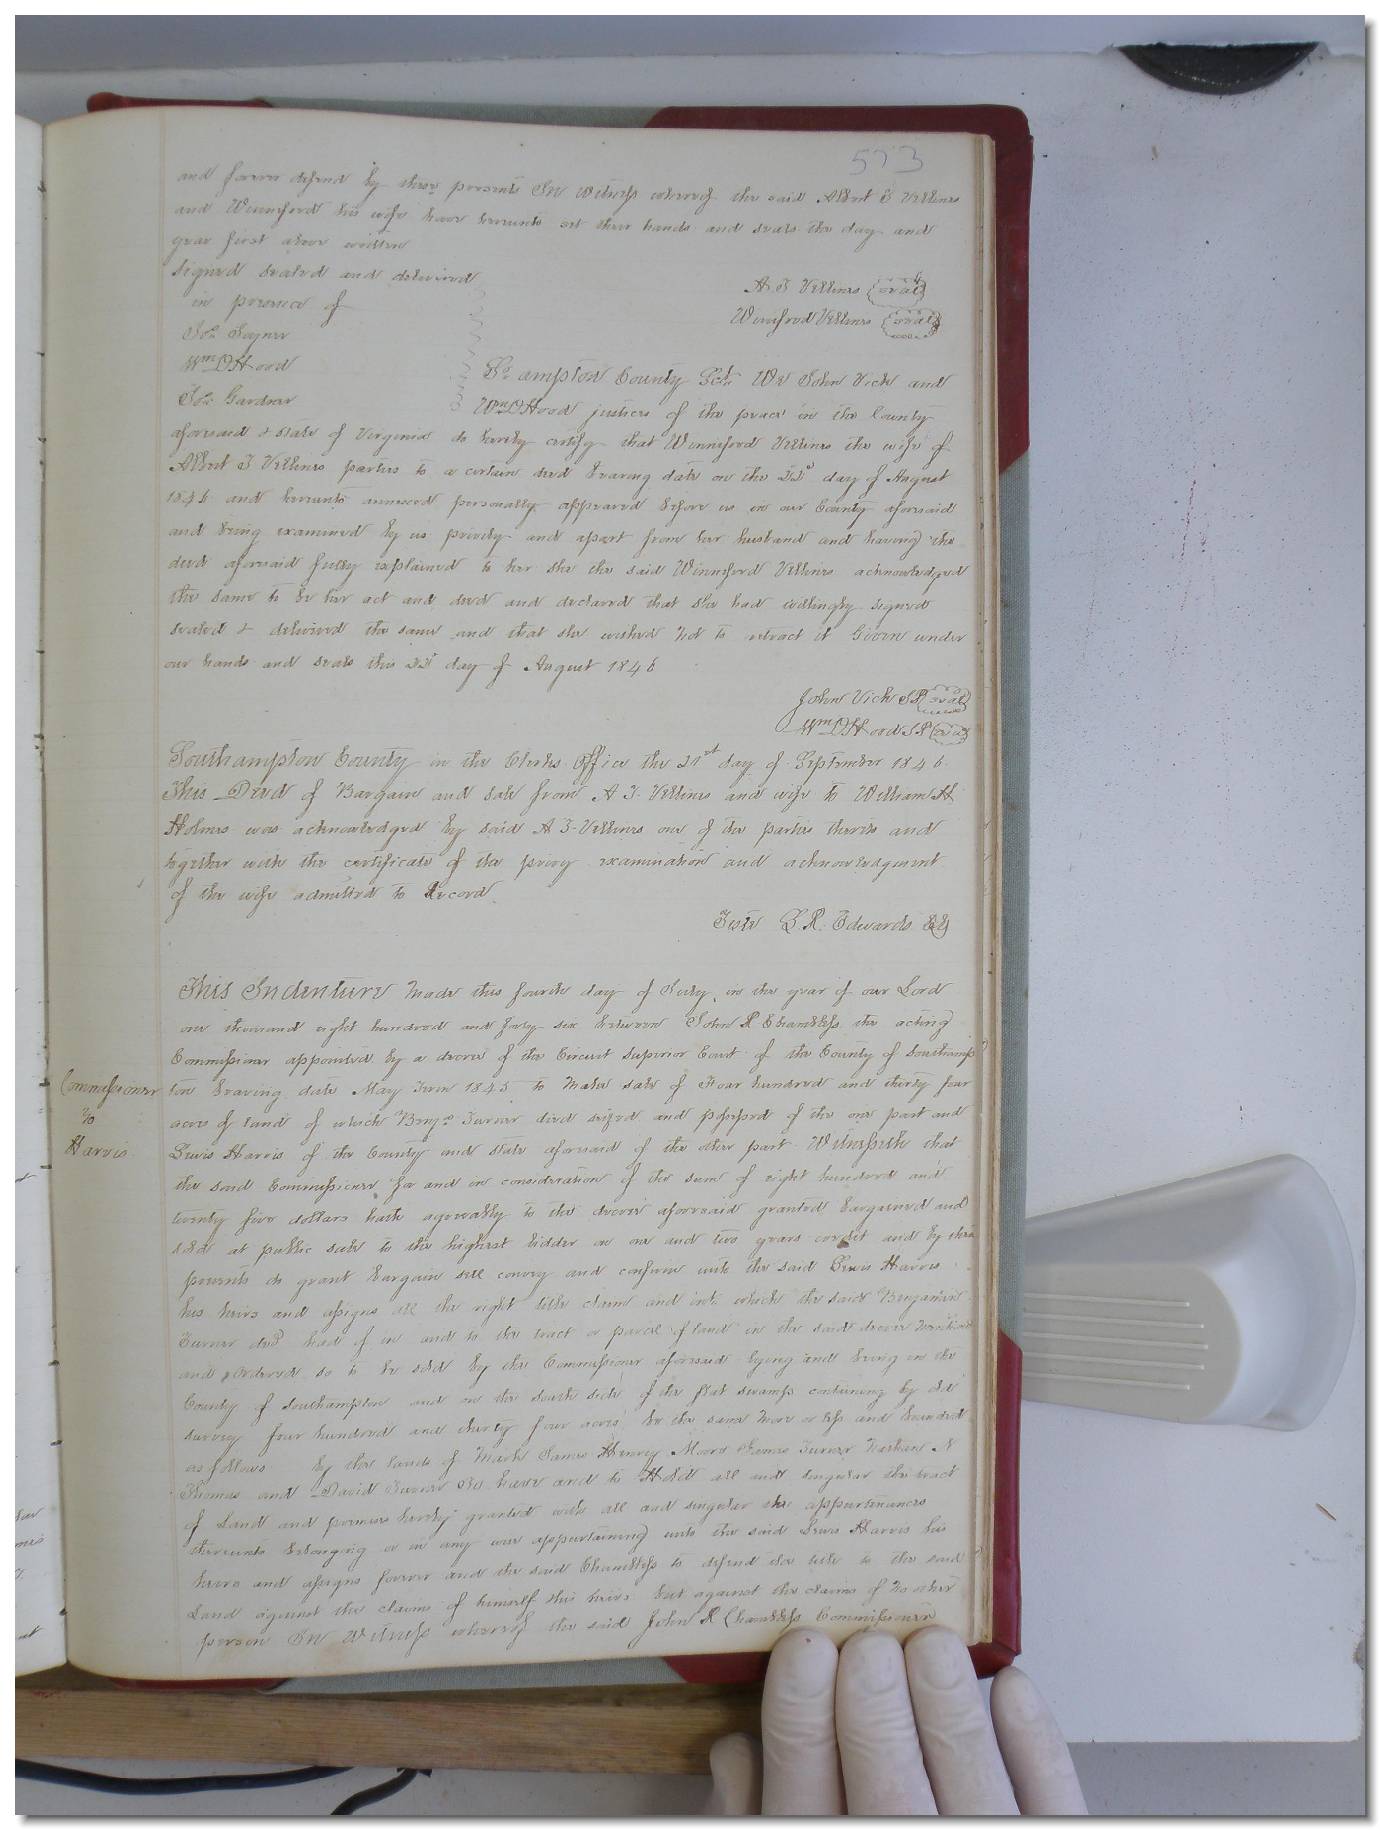 573
and forever defend by these presents In Witness whereof the said Albert T Vellines
and Winneford his wife have hereunto set their hands and seals the day and
year first above written
signed sealed and delivered
in presence of
A. T Vellines (seal)
Winnefood Vellines (seal)
Jos. Joyner
Wm D Hood
Jos. Gardner
So. ampton County Sct. We John Vick and
Wm D Hood justices of the peace in the County
aforesaid & State of Virginia do hereby certify that Winneford Vellines the wife of
Albert T Vellines parties to a certain deed bearing date on the 22d day of August
1846 and hereunto annexed personally appeared before us in our County aforesaid
and being examined by us privily and apart from her husband and having the
deed aforesaid fully explained to her she the said Winneford Vellines acknowledged
the same to be her act and deed and declared that she had willingly signed
sealed & delivered the same and that she wished not to retract it Given under
our hands and seals this 22d day of August 1846
John Vick J P (seal)
Wm D Hood J P (seal)
Southampton County in the Clerks Office the 21st day of September 1846
This Deed of Bargain and sale from A T. Vellines and wife to William H
Holmes was acknowledged by said A T. Vellines one of the parties thereto and
together with the certificate of the privy examination and acknowledgment
of the wife admitted to Record
Teste L. R. Edwards CC
This Indenture Made this fourth day of July in the year of our Lord
one thousand eight hundred and forty six between John R Chambliss the acting
Commissioner appointed by a decree of the Circuit Superior Court of the County of Southamp
Commissioner
to
Harris
ton bearing date May Term 1845 to Make sale of Four hundred and thirty four
acres of land of which Benja Turner died seized and possessed of the one part and
Lewis Harris of the County and State aforesaid of the other part Witnesseth that
the said Commissioner for and in consideration of the sum of eight hundred and
twenty five dollars hath agreeably to the decree aforesaid granted bargained and
sold at public sale to the highest bidder on one and two years credit and by these
presents do grant bargain sell convey and confirm unto the said Lewis Harris
his heirs and assigns all the right title claim and int. which the said Benjamin
Turner decd had of in and to the tract or parcel of land in the said decree mentioned
and ordered so to be sold by the Commissioner aforesaid lying and being in the
County of Southampton and on the south side of the flat swamp containing by old
survey four hundred and thirty four acres be the same more or less and bounded
as follows by the lands of Mark James Henry Moore James Turner Nathan N
Thomas and David Turner To have and to Hold all and singular the tract
of Land and premises hereby granted with all and singular the appurtenances
thereunto belonging or in any wise appurtaining unto the said Lewis Harris his
heirs and assigns forever and the said Chambliss to defend the title to the said
Land against the claims of himself & his heirs but against the claims of no other
person In Witness whereof the said John R Chambliss Commissioner